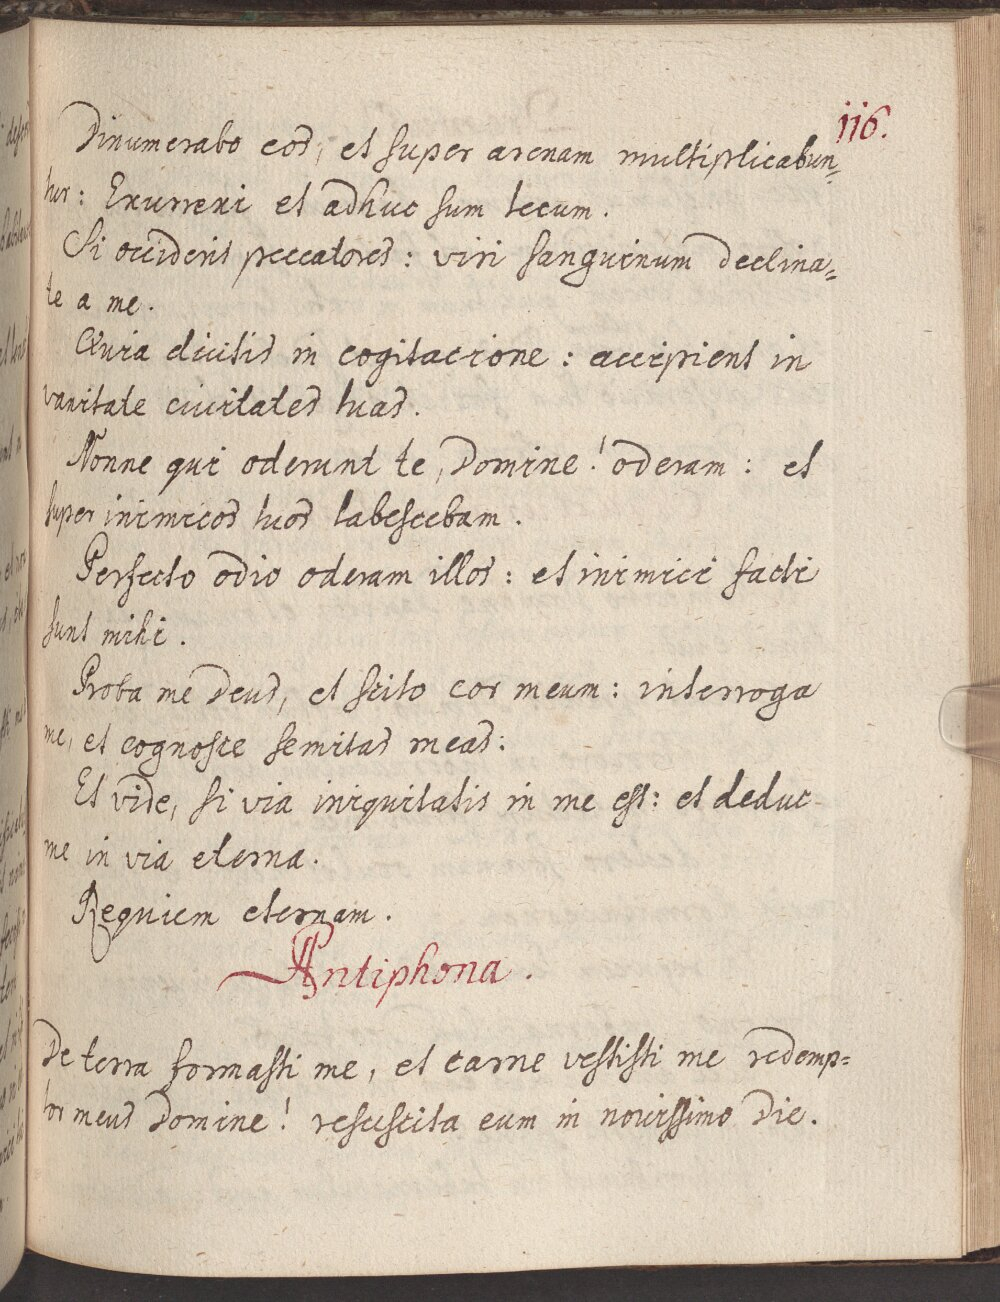 116.
Dinumerabo eos, et super arenam multiplicabun=
tur: Exurrexi et adhuc sum tecum.
Si occideris peccatores: viri sanguinum declina=
te a me.
Quia dicitis in cogitacione: accipient in
vanitate civitates tuas.
Nonne qui oderunt te, Domine! oderam: et
super inimicos tuos tabescebam.
Perfecto odio oderam illos: et inimici facti
sunt mihi.
Proba me Deus, et scito cor meum: interroga
me, et cognosce semitas meas:
Et vide, si via iniquitatis in me est: et deduc
me in via eterna.
Requiem eternam.
Antiphona.
De terra formasti me, et carne vestisti me redemp=
tor meus Domine! resuscita eum in novissimo Die.